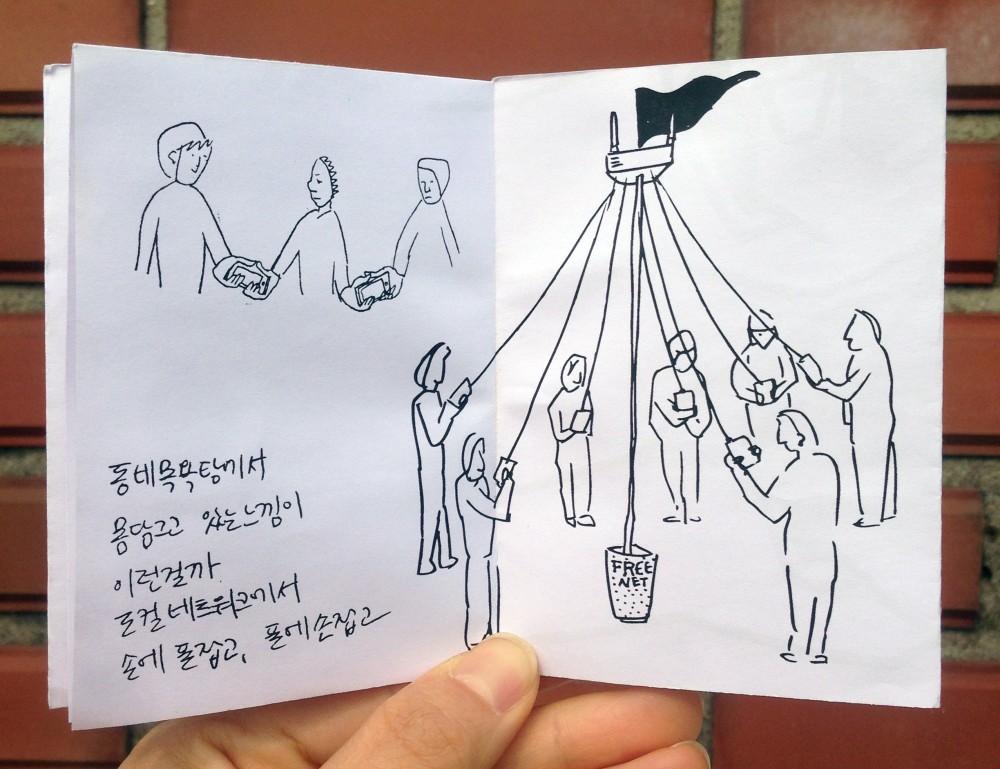 동네목욕탕에서
몸담그고 있는느낌이
이런걸까
로컬네트워크에서
손에 폰잡고, 폰에손잡고
FREE
.NET